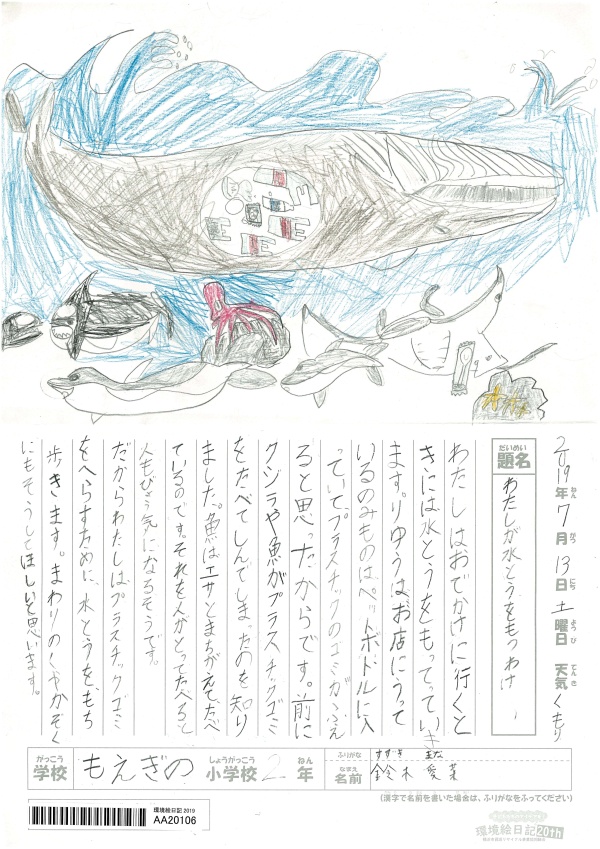 2019年7月13日土曜日 天気くもり
題名 わたしが水とうをもつわけ
わたしはおでかけに行くと
きには水とうをもってっていき
ます。りゆうは、お店にうって
いるのみものはペットボトルに入
っていてプラスチックのゴミがふえ
ると思ったからです。前に
クジラや魚がプラスチックゴミ
をたべてしんでしまったのを知り
ました。魚はエサとまちがえてたべ
ているのです。それを人がとってたべると
人もびょう気になるそうです。
だからわたしはプラスチックゴミ
をへらすために、水とうをもち
歩きます。まわりの人やかぞく
にもそうしてほしいと思います。
がっこう しょうがっこう ねん ふりがな すずき まな
学校 もえぎの 小学校 2年 なまえ 名前 鈴木 愛菜
(漢字で名前を書いた場合は、ふりがなをふってください)
環境絵日記 2019
AA20106
環境絵日記20th